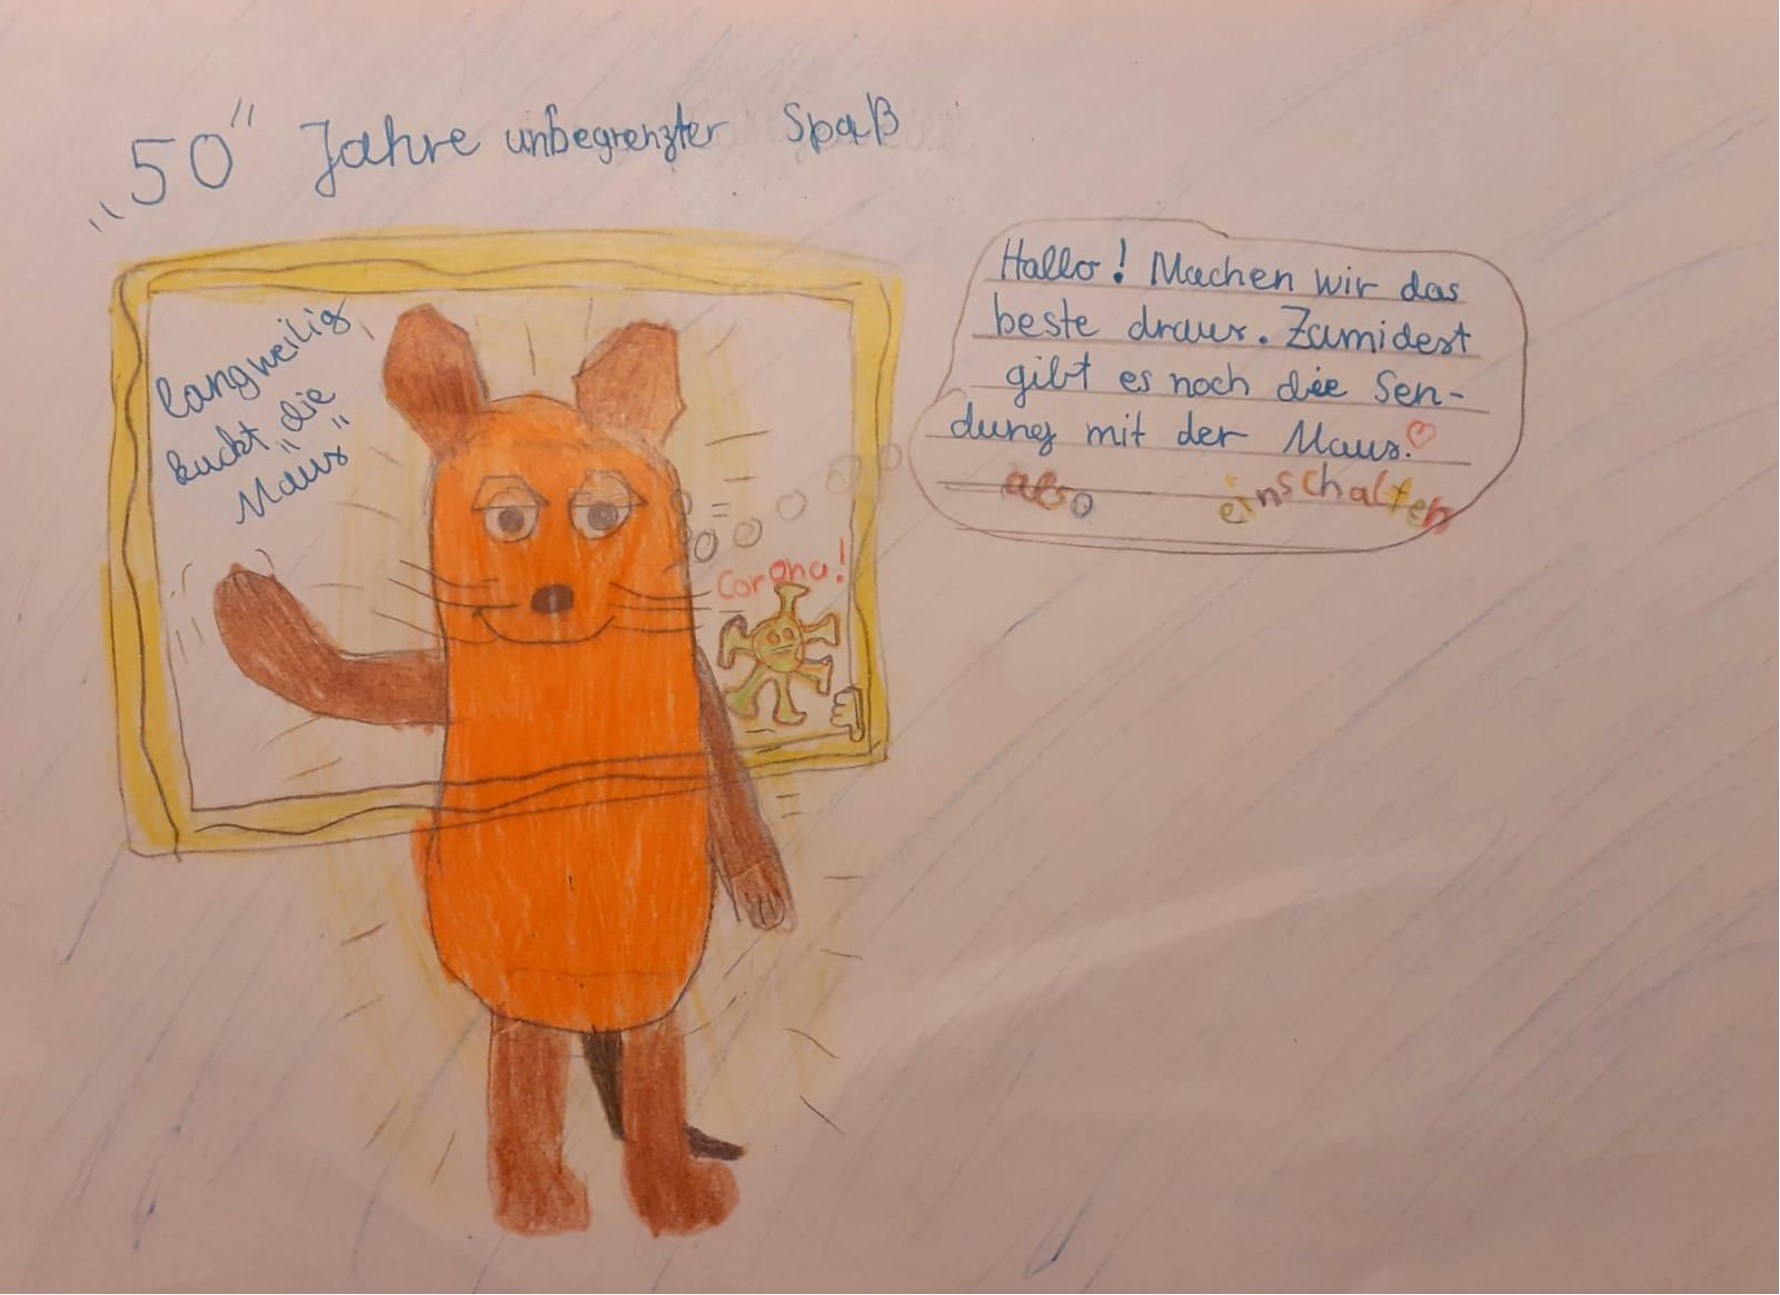 „50" Jahre unbegrenzter Spaß
langweilig
kuckt „die
Maus"
Hallo! Machen wir das
beste draus. Zumidest
gibt es noch die Sen-
dung mit der Maus.♡
also einschalten
Corona!